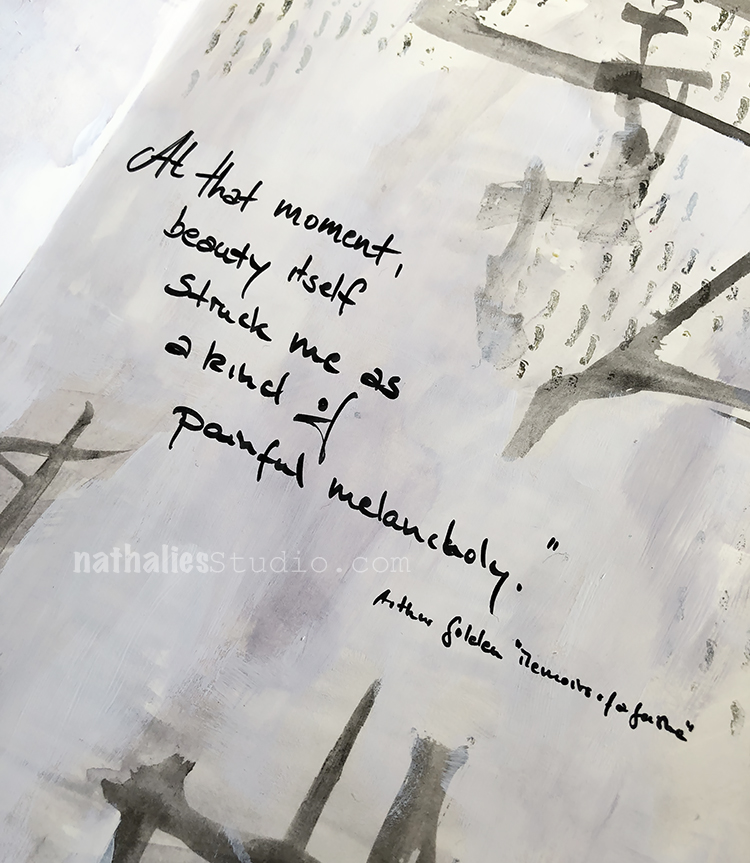 At that moment,
beauty itself
struck me as
a kind of
painful melancholy."
Arthur Golden "Memoirs of a Geisha"
nathaliesStudio.com